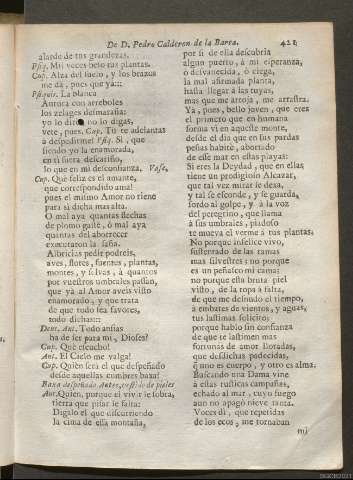 De D. Pedro Calderon de la Barca. 421
alarde de tus grandezas.
Psiq. Mil veces beso tus plantas.
Cup. Alza del suelo, y los brazos
me dá, pues que yà:::
Psiquis. La blanca
Aurora con arreboles
los zelages desmaraña:
yo lo diré no lo digas,
vete, pues. Cup. Tù te adelantas
à despedirme? Psiq. Sì, que
siendo yo la enamorada,
en ti fuera descariño,
lo que en mi desconfianza. Vase.
Cup. Què feliz es el amante,
que correspondido ama!
pues el mismo Amor no tiene
para sì dicha mas alta.
O mal aya quantas flechas
de plomo gastè, ò mal aya
quantas del aborrecer
executaron la saña.
Albricias pedir podreis,
aves, flores, fuentes, plantas,
montes, y selvas, à quantos
por vuestros umbrales passan,
que yà al Amor aveis visto
enamorado, y que trata
de que todo sea favores,
todo dichas:::
Dent. Ant. Todo ansias
ha de ser para mi, Dioses?
Cup. Què escucho!
Ant. El Cielo me valga!
Cup. Quièn serà el que despeñado
desde aquellas cumbres baxa?
Baxa despeñado Anteo, vestido de pieles
Ant. Quien, porque el vivir le sobra,
tierra que pisar le falta:
Digalo el que discurriendo
la cima de essa montaña,
por si de ella descubria
algun puerto, à mi esperanza,
ò desvanecida, ò ciega,
la mal afirmada planta,
hasta llegar à las tuyas,
mas que me arroja, me arrastra.
Yà, pues, bello joven, que eres
el primero que en humana
forma vì en aqueste monte,
desde el dia que en sus pardas
peñas habitè, abortado
de esse mar en estas playas:
Si eres la Deydad, que en ellas
tiene un prodigioso Alcazar,
que tal vez mirar se dexa,
y tal se esconde, y se guarda,
sordo al golpe, y à la voz
del peregrino, que llama
à sus umbrales, piadoso
te mueva el verme à tus plantas:
No porque infelice vivo,
sustentado de las ramas
mas silvestres: no porque
es un peñasco mi cama;
no porque esta bruta piel
visto, de la ropa à falta,
de que me desnudo el tiempo,
à embates de vientos, y aguas,
tus lastimas solicito;
porque hablo sin confianza
de que te lastimen mas
fortunas de amor lloradas,
que desdichas padecidas,
q̃ uno es cuerpo, y otro es alma.
Buscando una Dama vine
à estas rusticas campañas,
echado al mar, cuyo fuego
aun no apagò nieve tanta.
Voces dì, que repetidas
de los ecos, me tornaban
mi